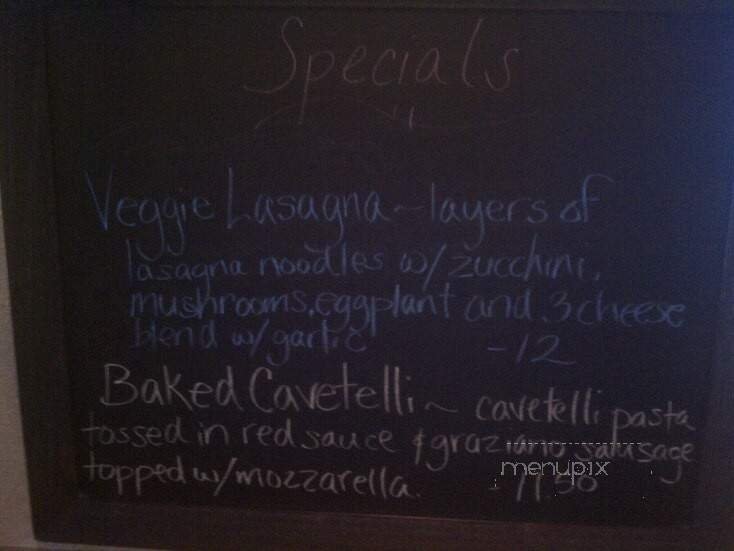 Specials
Veggie Lasagna ~ layers of
lasagna noodles w/ zucchini,
mushrooms, eggplant and 3 cheese
blend w/ garlic -12
Baked Cavetelli ~ cavetelli pasta
tossed in red sauce & graziano sausage
topped w/ mozzarella. -11.50
menupix